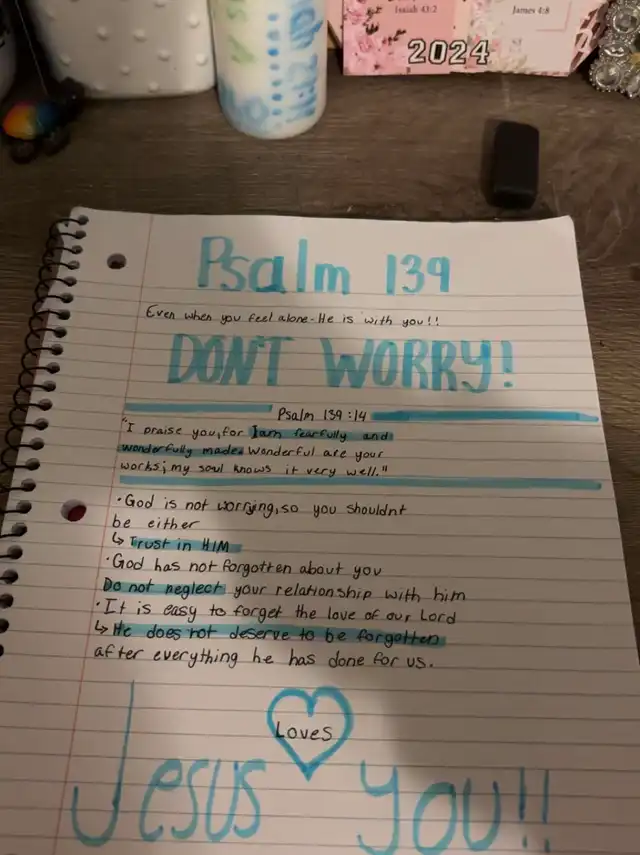 Isaiah 43:2
James 4:8
2024
Psalm 139
Even when you feel alone-He is with you!!
DONT WORRY!
Psalm 139:14
"I praise you, for I am fearfully and
wonderfully made. Wonderful are your
works; my soul knows it very well."
·God is not worrying, so you shouldnt
be either
↳ Trust in HIM
·God has not forgotten about you
Do not neglect your relationship with him
·It is easy to forget the love of our Lord
↳ He does not deserve to be forgotten
after everything he has done for us.
Loves
Jesus you!!